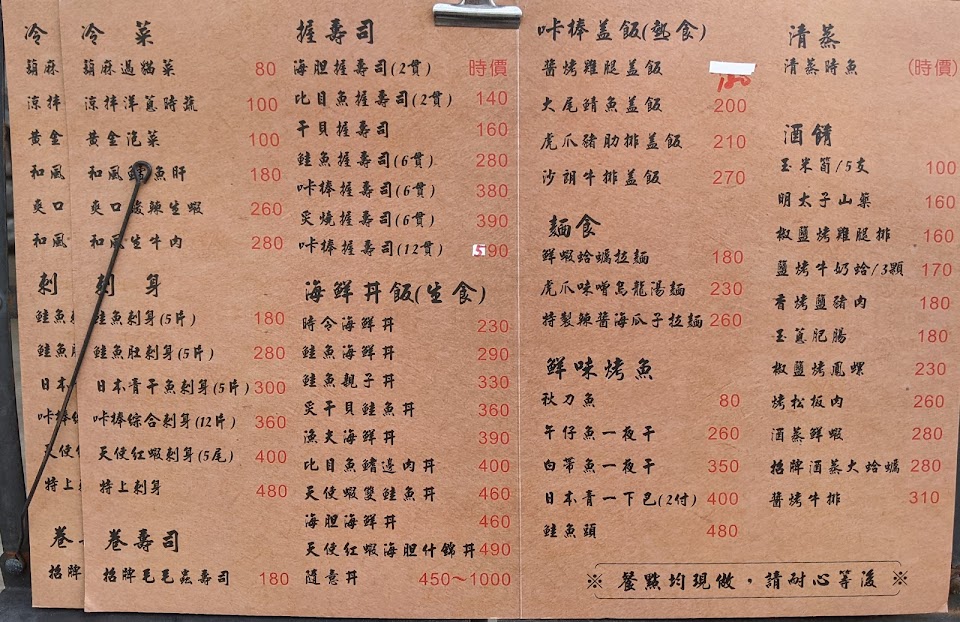 冷菜
胡麻過貓菜 80
涼拌洋蔥時蔬 100
黃金泡菜 100
和風 魚肝 180
爽口 辣生蝦 260
和風生牛肉 280
刺身
鮭魚刺身(5片) 180
鮭魚肚刺身(5片) 280
日本青干魚刺身(5片) 300
咔棒綜合刺身(12片) 360
天使紅蝦刺身(5尾) 400
特上刺身 480
卷壽司
招牌毛毛蟲壽司 180
握壽司
海胆握壽司(2貫) 時價
比目魚握壽司(2貫) 140
干貝握壽司 160
鮭魚握壽司(6貫) 280
咔棒握壽司(6貫) 380
炙燒握壽司(6貫) 390
咔棒握壽司(12貫) 590
海鮮丼飯(生食)
時令海鮮丼 230
鮭魚海鮮丼 290
鮭魚親子丼 330
炙干貝鮭魚丼 360
漁夫海鮮丼 390
比目魚鰭邊肉丼 400
天使蝦雙鮭魚丼 460
海胆海鮮丼 460
天使紅蝦海胆什錦丼 490
隨意丼 450～1000
咔棒盖飯(熟食)
醬烤雞腿盖飯
大尾鯖魚盖飯 200
虎爪豬肋排盖飯 210
沙朗牛排盖飯 270
麵食
鮮蝦蛤蠣拉麵 180
虎爪味噌烏龍湯麵 230
特製辣醬海瓜子拉麵 260
鮮味烤魚
秋刀魚 80
午仔魚一夜干 260
白帶魚一夜干 350
日本青一下巴(2付) 400
鮭魚頭 480
清蒸
清蒸時魚 (時價)
酒餚
玉米筍/5支 100
明太子山藥 160
椒鹽烤雞腿排 160
鹽烤牛奶蛤/3顆 170
香烤鹽豬肉 180
玉蔥肥腸 180
椒鹽烤鳳螺 230
烤松板肉 260
酒蒸鮮蝦 280
招牌酒蒸大蛤蠣 280
醬烤牛排 310
※ 餐點均現做，請耐心等後 ※